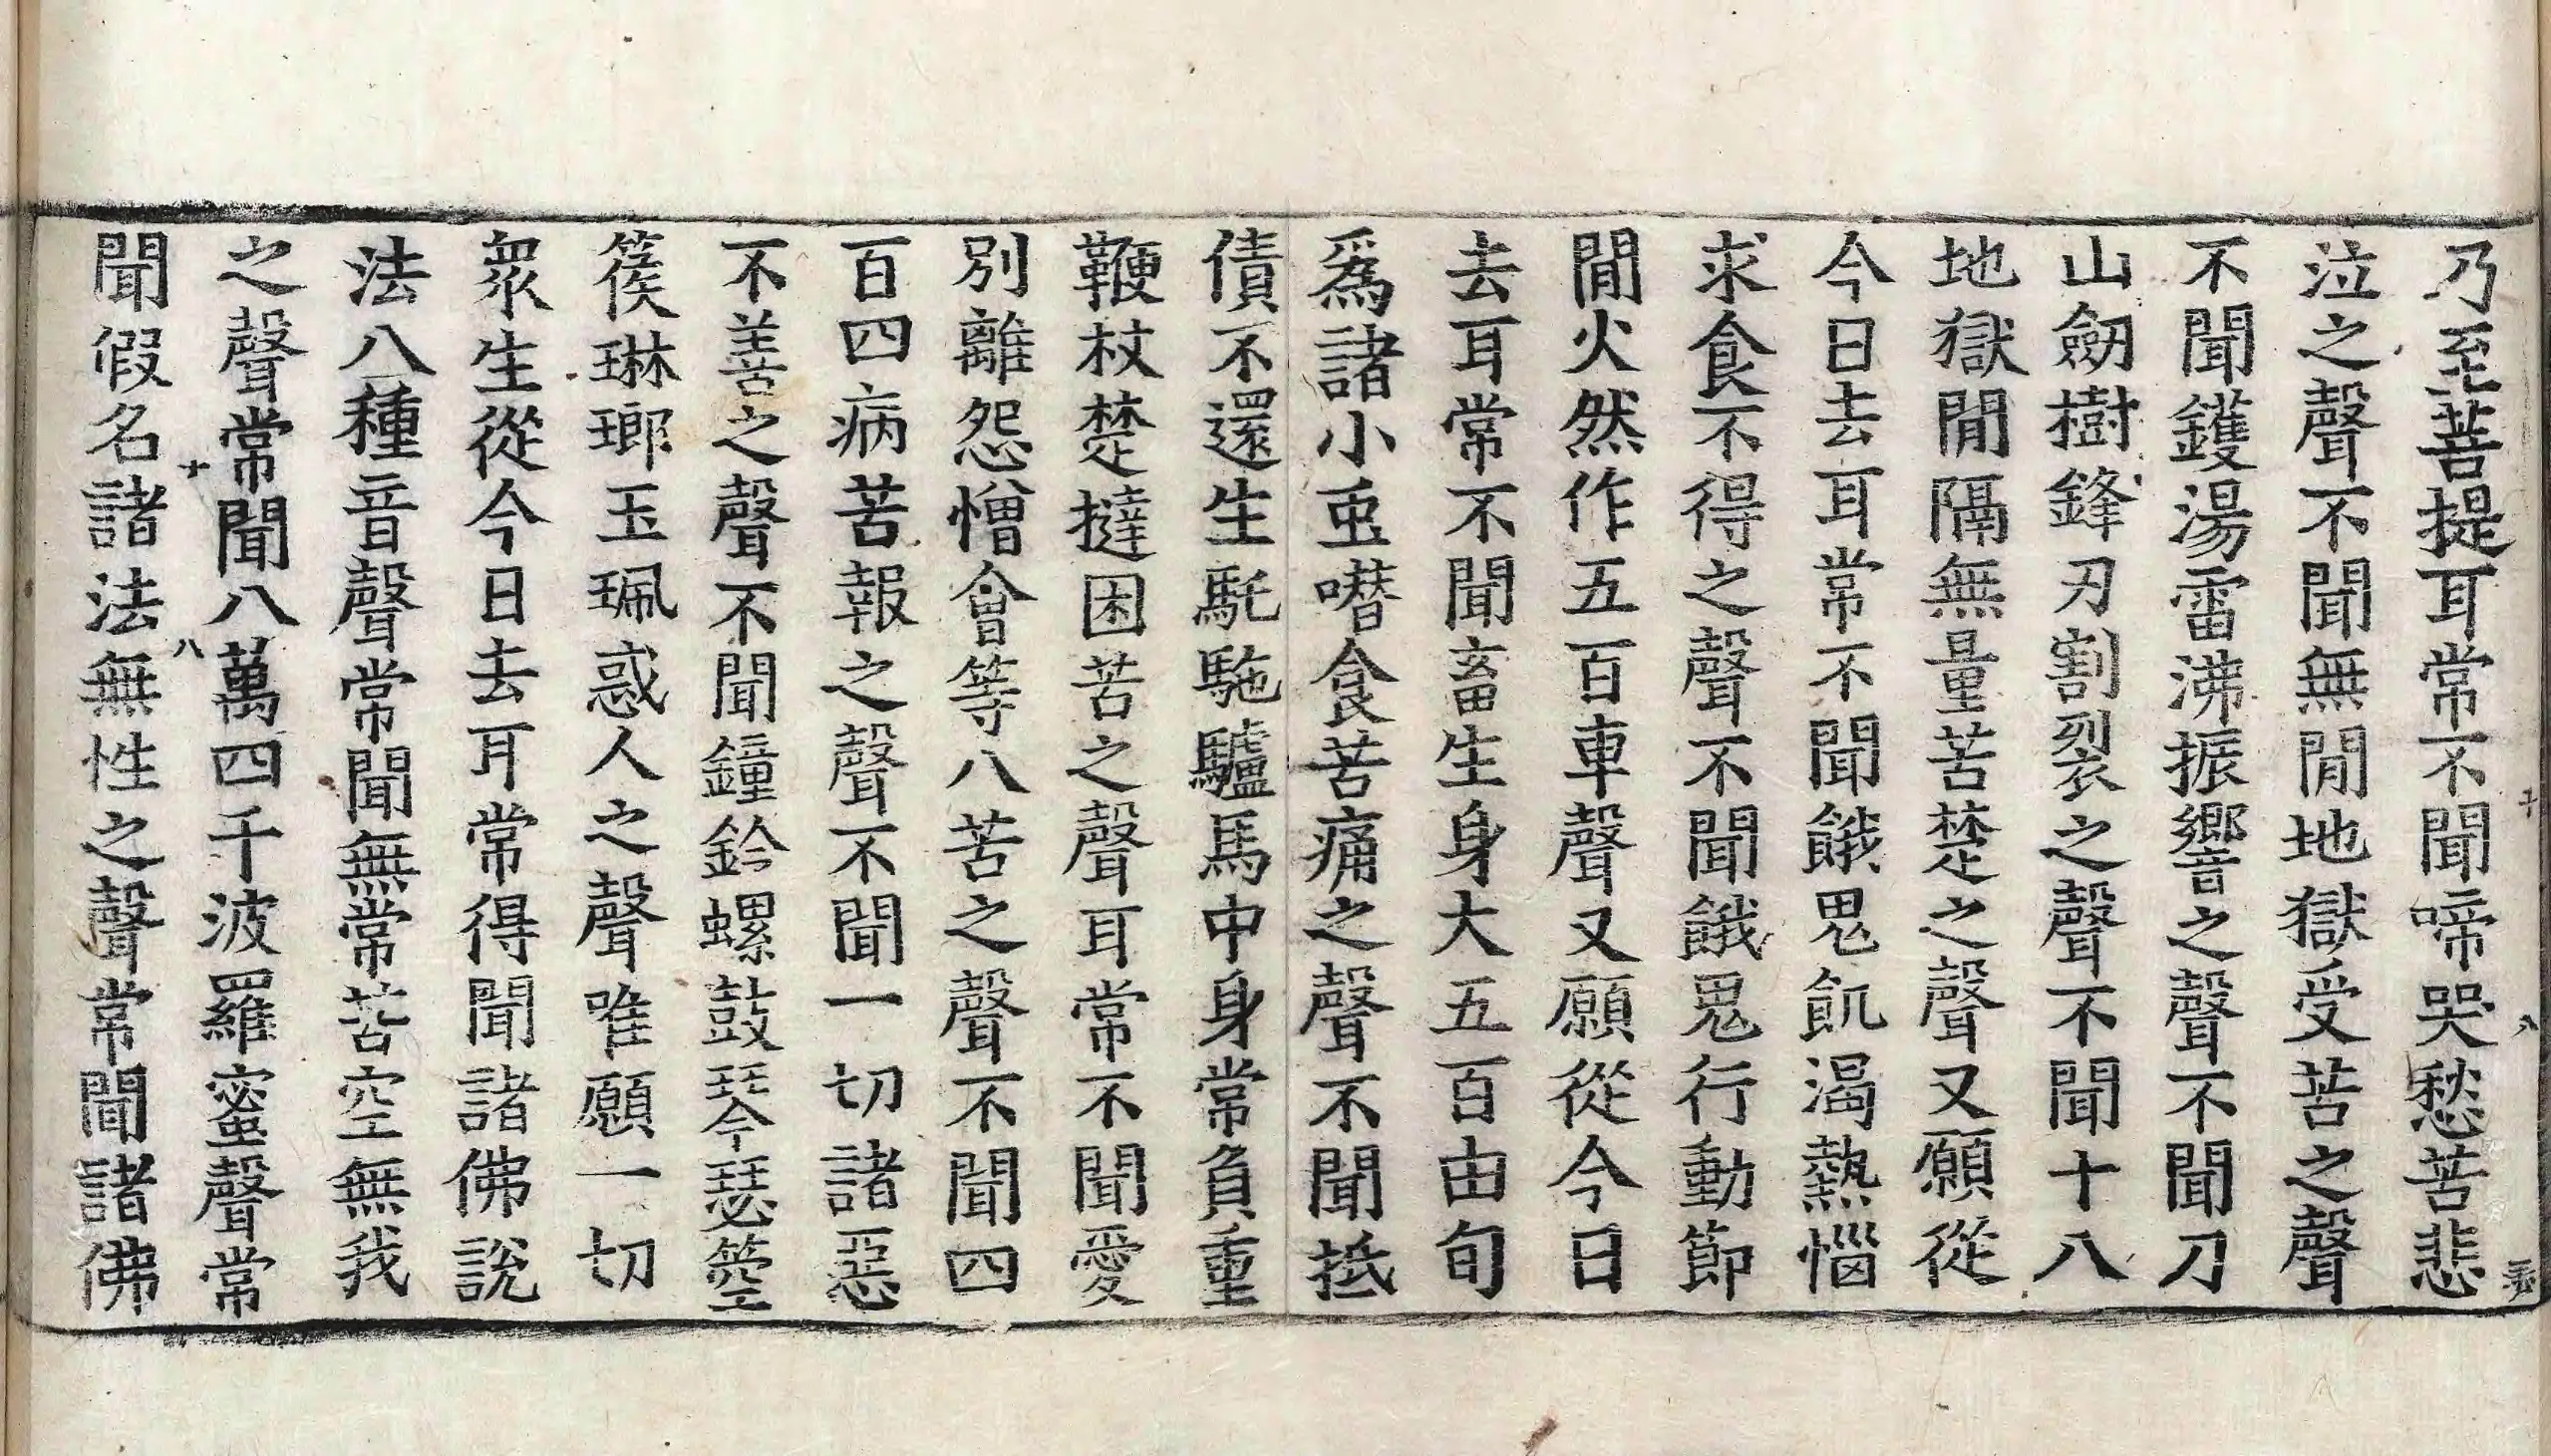 乃至菩提耳常不聞啼哭愁苦悲
泣之聲不聞無間地獄受苦之聲
不聞鑊湯雷沸振響之聲不聞刀
山劒樹鋒刃割裂之聲不聞十八
地獄間隔無量苦楚之聲又願從
今日去耳常不聞餓鬼飢渴熱惱
求食不得之聲不聞餓鬼行動節
間火然作五百車聲又願從今日
去耳常不聞畜生身大五百由旬
爲諸小虫噆食苦痛之聲不聞抵
債不還生馲駞驢馬中身常負重
鞭杖楚撻困苦之聲耳常不聞愛
別離怨憎會等八苦之聲不聞四
百四病苦報之聲不聞一切諸惡
不善之聲不聞鐘鈴螺鼓琴瑟箜
篌琳瑯玉珮惑人之聲唯願一切
衆生從今日去耳常得聞諸佛說
法八種音聲常聞無常苦空無我
之聲常聞八萬四千波羅蜜聲常
聞假名諸法無性之聲常聞諸佛